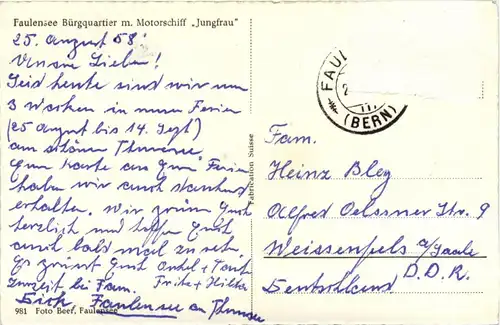 Faulensee Bürgquartier m. Motorschiff „Jungfrau"
25. August 58!
Unsere Lieben!
Seid heute sind wir um
3 Wochen in Ferien
(25 August bis 14. Sept)
am schönen Thunersee
Karte aus Ferien
haben wir auch dankend
erhalten. Wir grüssen Euch
herzlich und hoffen Euch
auch bald mal zu seh.
Es grüsst Euch Onkel + Tante
zurzeit bei Fam. Fritz +
Faulensee am Thunersee
981 Foto Beer, Faulensee
Fabrication Suisse
FAUL
(BERN)
Fam.
Heinz Bley
Alfred Oelssner Str. 9
Weissenfels a/Saale
D.D.R.
Deutschland